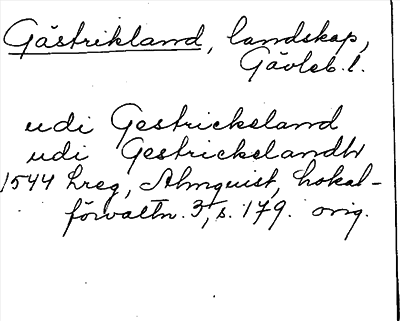 Gästrikland, landskap,
Gävleb. l.
udi Gestricksland
udi Gestrickslandh
1544 Lreg, Almquist, Lokal-
förvaltn. 3, s. 179. orig.